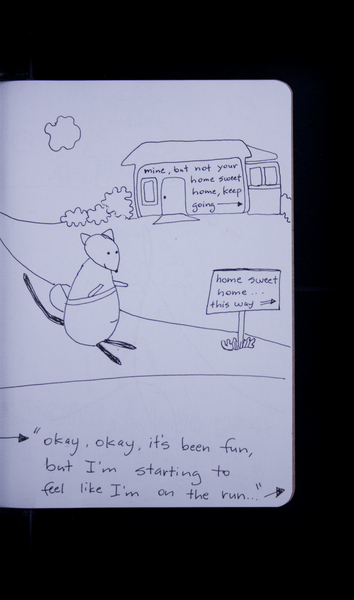 mine, but not your
home sweet
home, keep
going →
home sweet
home...
this way ⇒
→ "okay, okay, it's been fun,
but I'm starting to
feel like I'm on the run..." →